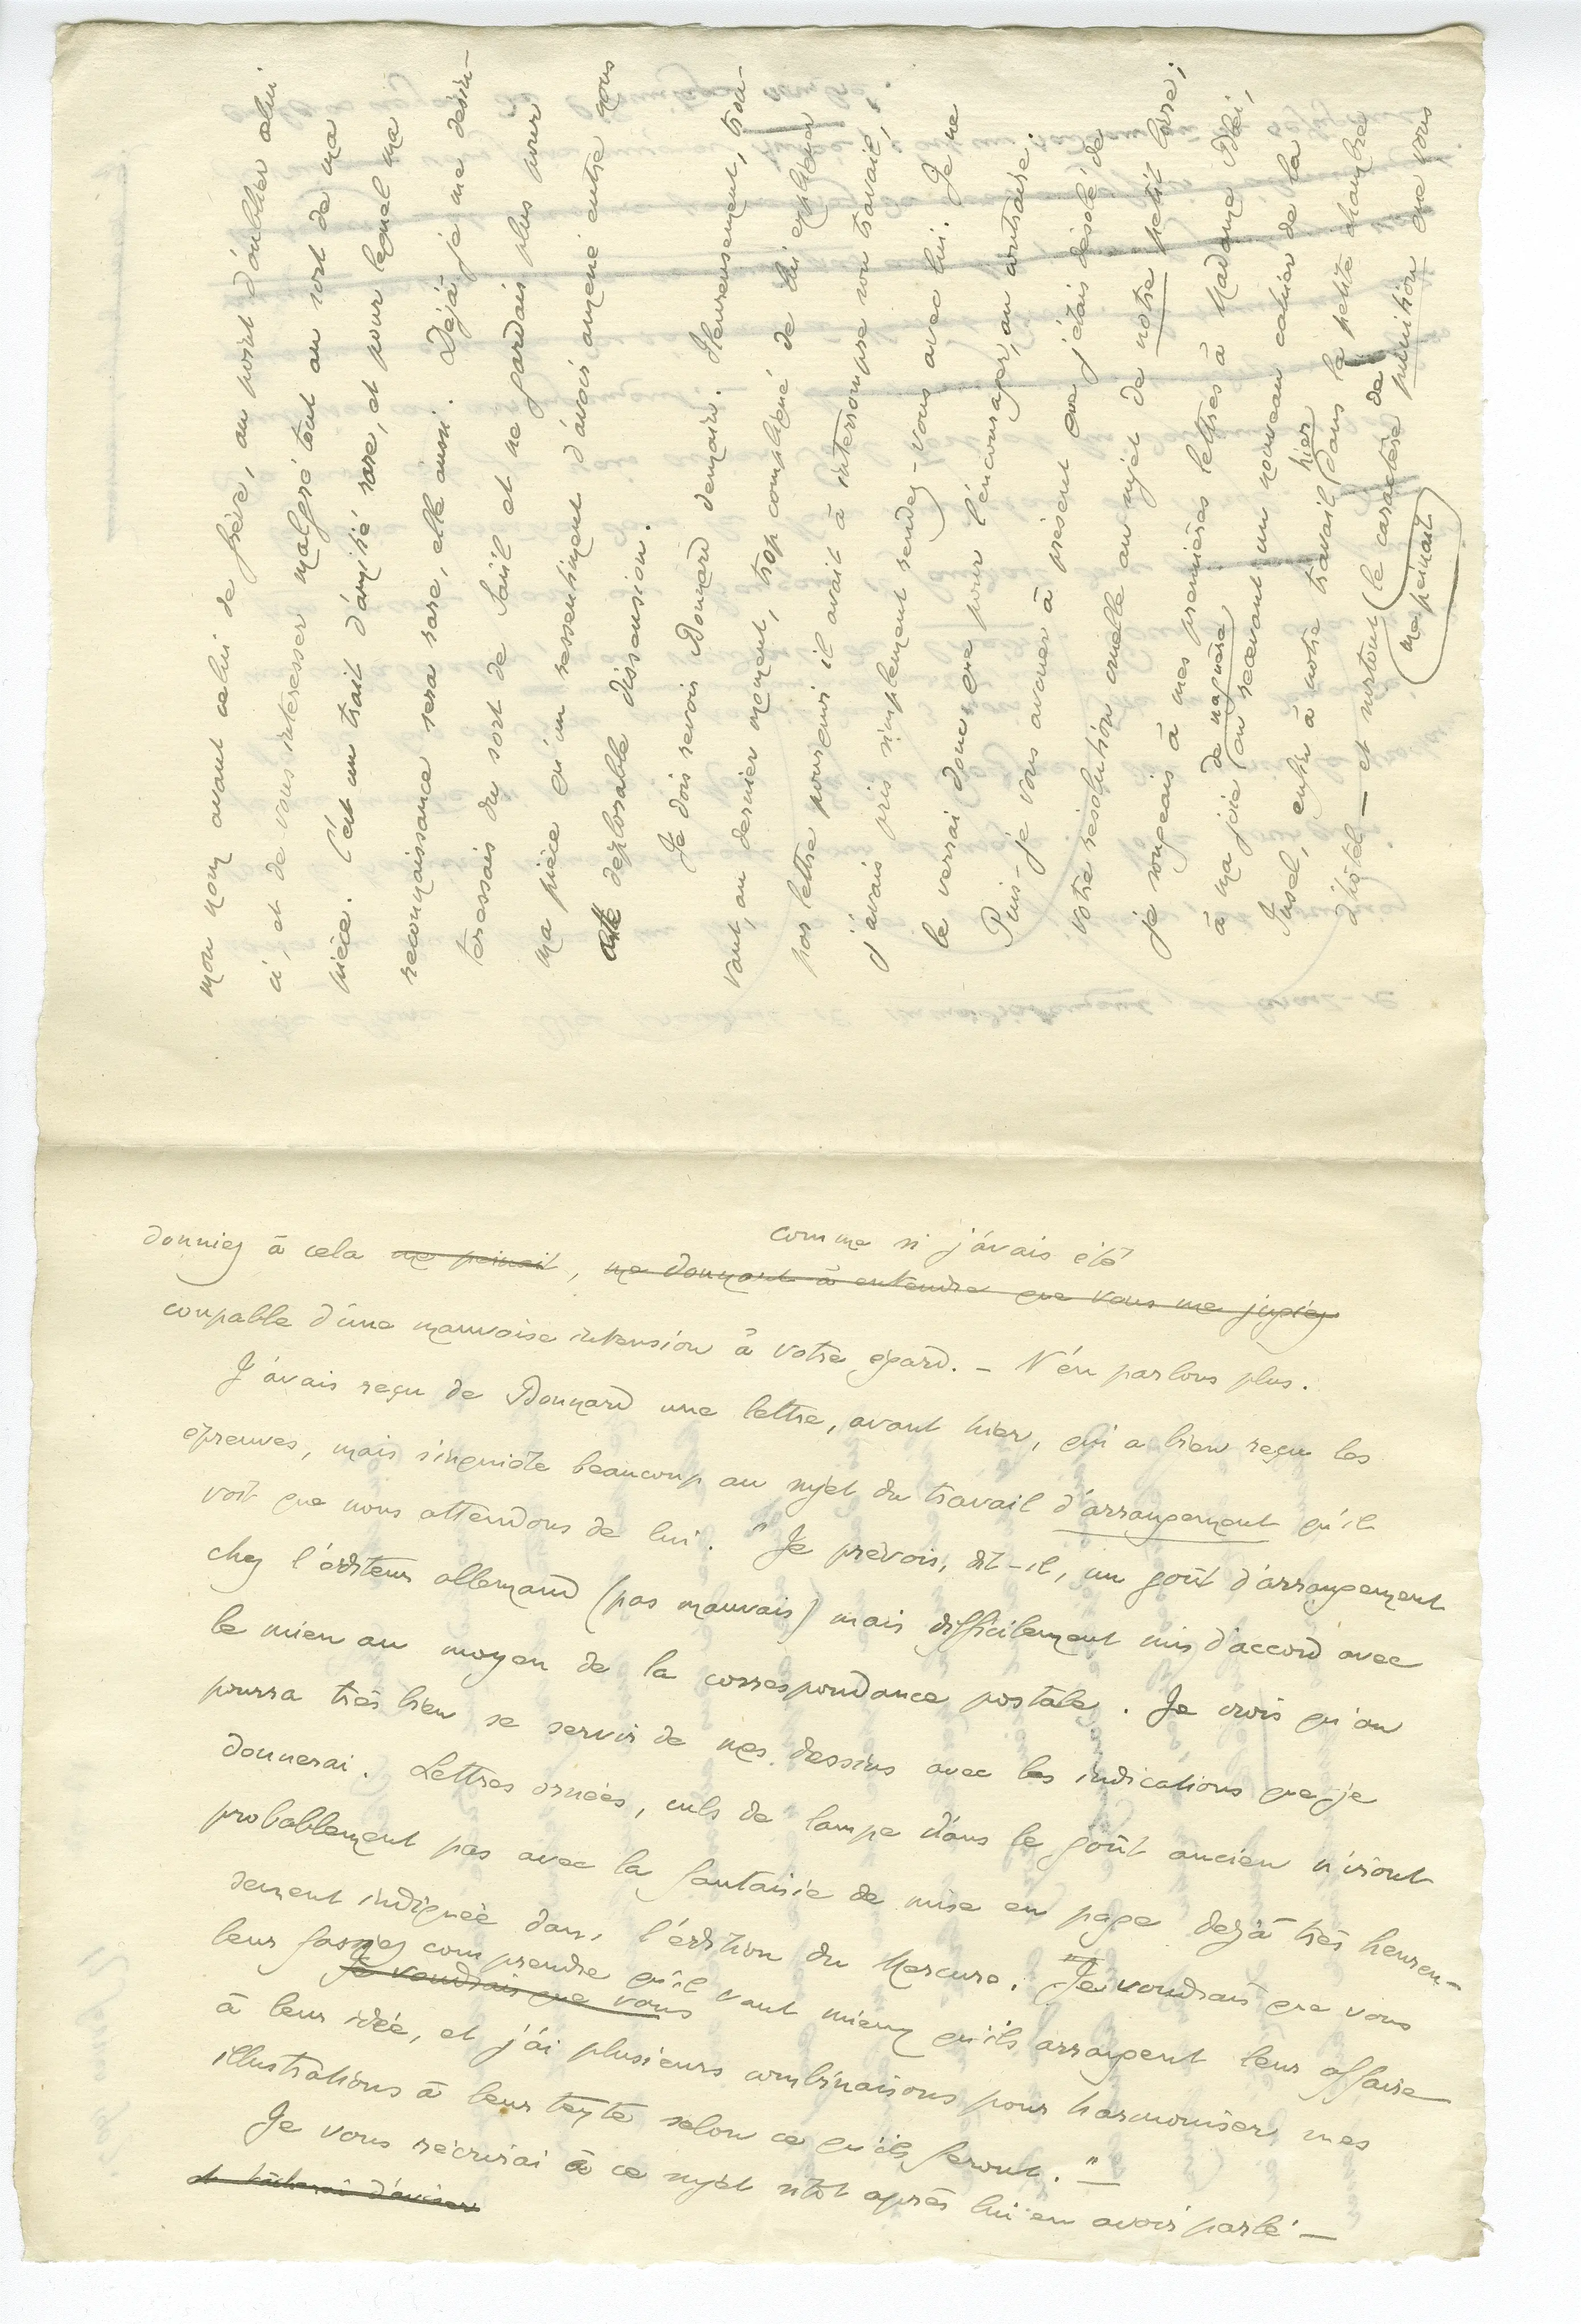 mon nom avant celui de frère, au point d'oublier celui
ci, et de vous intéresser malgré tout au sort de ma
pièce. C'est un trait d'amitié rare, et pour lequel ma
reconnaissance sera rare, elle aussi. Déjà je me désin-
téressais du sort de Saül et ne gardais plus pour
ma pièce qu'un ressentiment d'avoir amené entre nous
cette déplorable dissension.
Je dois revoir Bonnard demain. Heureusement, trou-
vant, au dernier moment, trop compliqué de lui expliquer
par lettre pourquoi il avait à interrompre son travail,
j'avais pris simplement rendez-vous avec lui. Je ne
le verrai donc que pour l'encourager, au contraire.
Puis-je vous avouer à présent que j'étais désolé de
votre résolution cruelle au sujet de notre petit livre;
je songeais à mes premières lettres à Madame Blei,
à ma joie de naguère (en recevant un nouveau cahier de la
Insel, enfin à notre travail hier dans la petite chambre
d'hôtel — et surtout (le caractère de punition que vous
me peinait
donniez à cela me peinait, comme si j'avais été
me donnant à entendre que vous me jugiez
coupable d'une mauvaise intension à votre égard. — N'en parlons plus.
J'avais reçu de Bonnard une lettre, avant hier, qui a bien reçu les
épreuves, mais s'inquiète beaucoup au sujet du travail d'arrangement qu'il
voit que nous attendons de lui. "Je prévois, dit-il, un goût d'arrangement
chez l'éditeur allemand (pas mauvais) mais difficilement mis d'accord avec
le mien au moyen de la correspondance postale. Je crois qu'on
pourra très bien se servir de mes dessins avec les indications que je
donnerai. Lettres ornées, culs de lampe dans le goût ancien n'iront
probablement pas avec la fantaisie de mise en page déjà très heureu-
sement indiquée dans l'édition du Mercure. "Je voudrais que vous
leur fassiez comprendre qu'il vaut mieux qu'ils arrangent leur affaire
Je voudrais que vous
à leur idée, et j'ai plusieurs combinaisons pour harmoniser mes
illustrations à leur texte selon ce qu'ils feront."
Je vous récrirai à ce sujet sitôt après lui en avoir parlé —
et tâcherai d'aviser